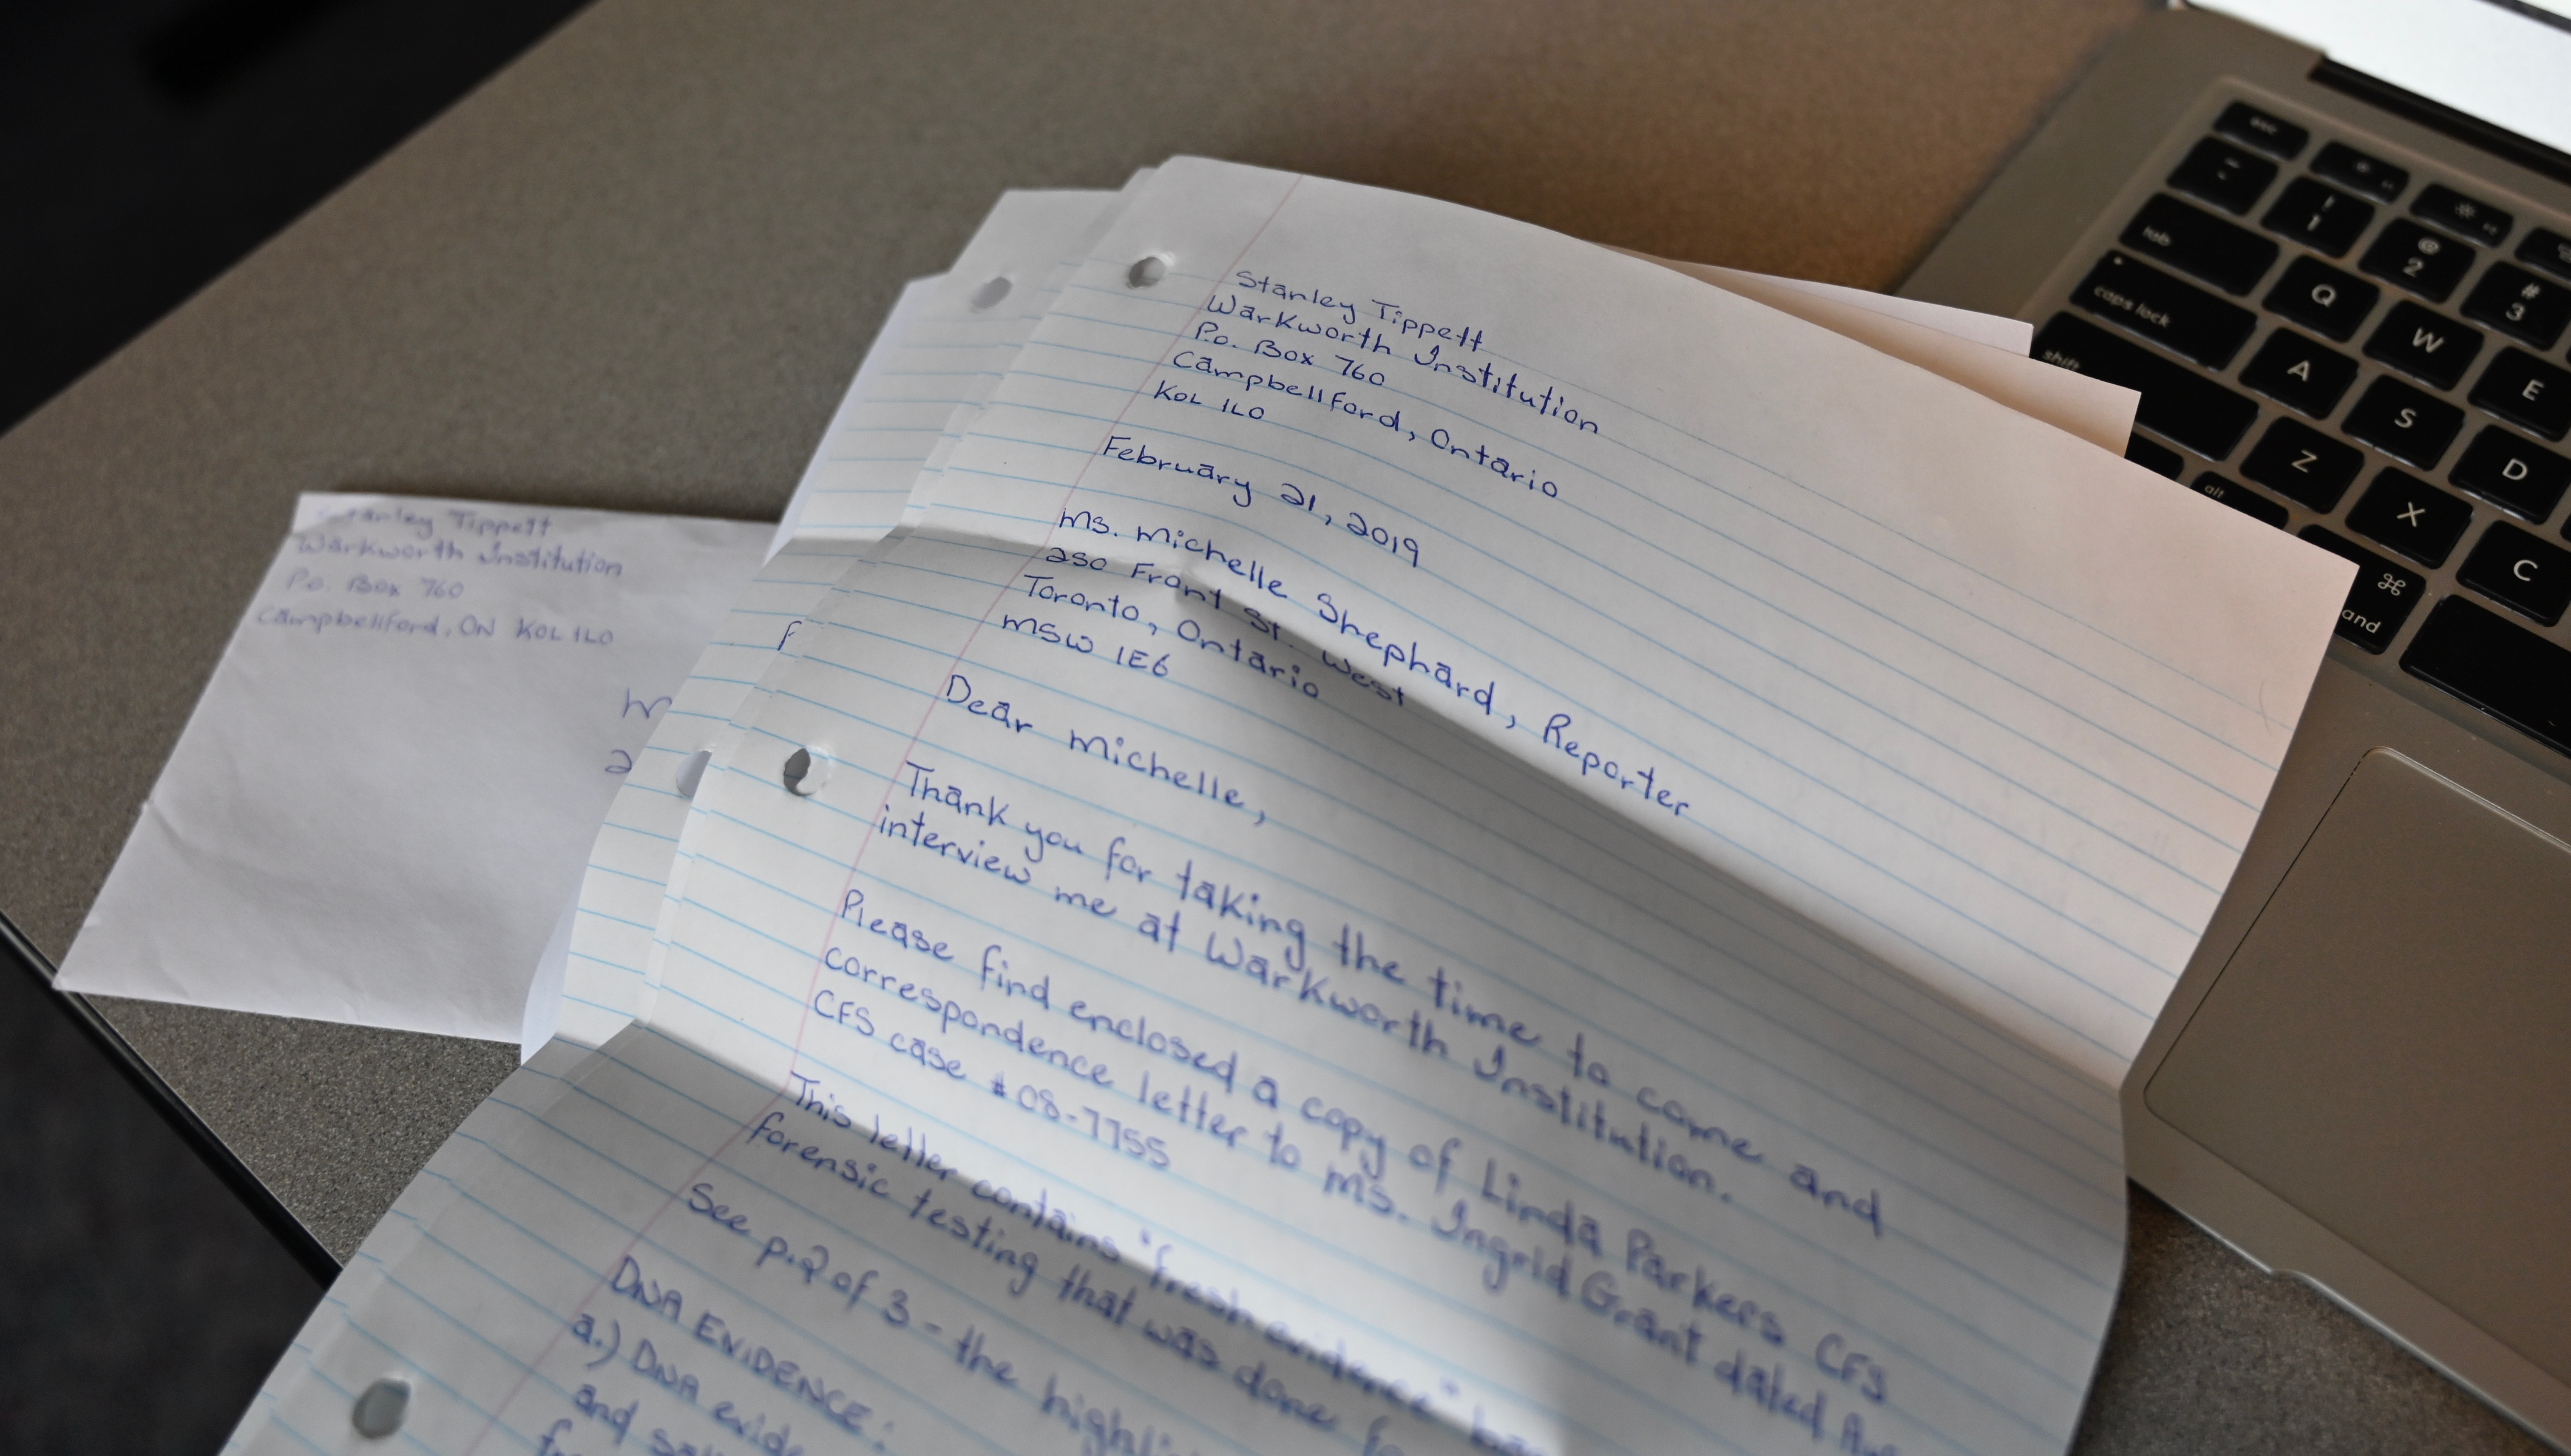 Stanley Tippett
Warkworth Institution
P.O. Box 760
Campbellford, Ontario
K0L 1L0
February 21, 2019
Ms. Michelle Shephard, Reporter
250 Front St. West
Toronto, Ontario
M5W 1E6
Dear Michelle,
Thank you for taking the time to come and
interview me at Warkworth Institution.
Please find enclosed a copy of Linda Parkers CFS
correspondence letter to Ms. Ingrid Grant dated
CFS case #08-7755
This letter contains "fresh evidence"
forensic testing that was done
See p.2 of 3 - the
DNA EVIDENCE:
a.) DNA
and
Stanley Tippett
Warkworth Institution
P.O. Box 760
Campbellford, ON K0L 1L0
esc
tab
caps lock
shift
alt
⌘
! 1
@ 2
# 3
Q W E
A S D
Z X C